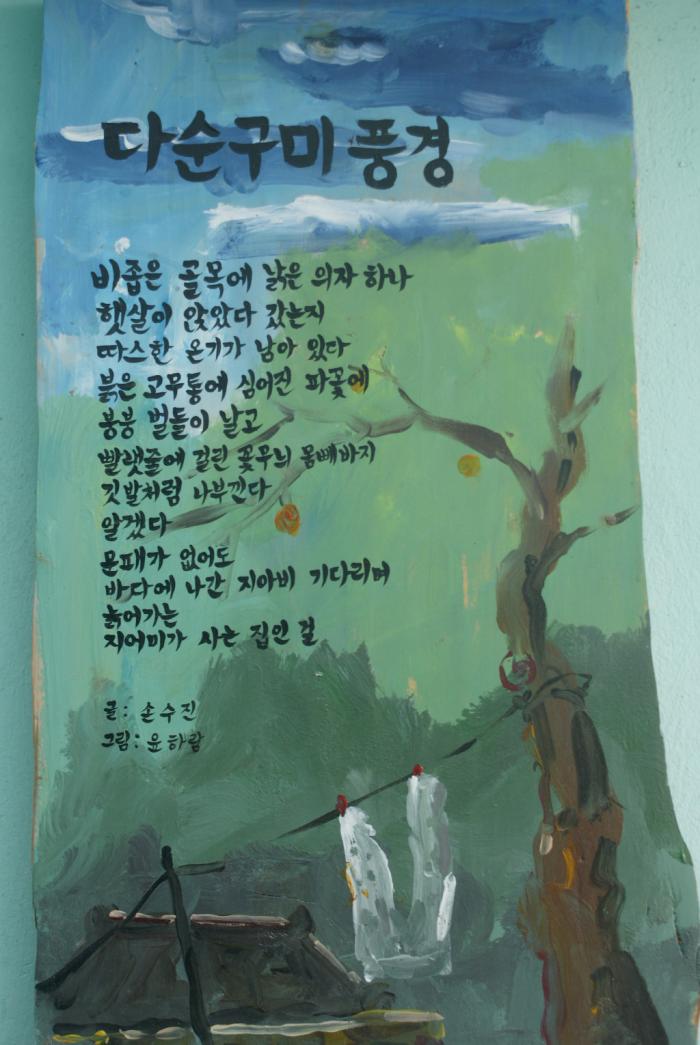 다순구미 풍경
비좁은 골목에 낡은 의자 하나
햇살이 앉았다 갔는지
따스한 온기가 남아 있다
붉은 고무통에 심어진 파꽃에
붕붕 벌들이 날고
빨랫줄에 걸린 꽃무늬 몸빼바지
깃발처럼 나부낀다
알겠다
문패가 없어도
바다에 나간 지아비 기다리며
늙어가는
지어미가 사는 집인 걸
글: 손수진
그림: 윤하람